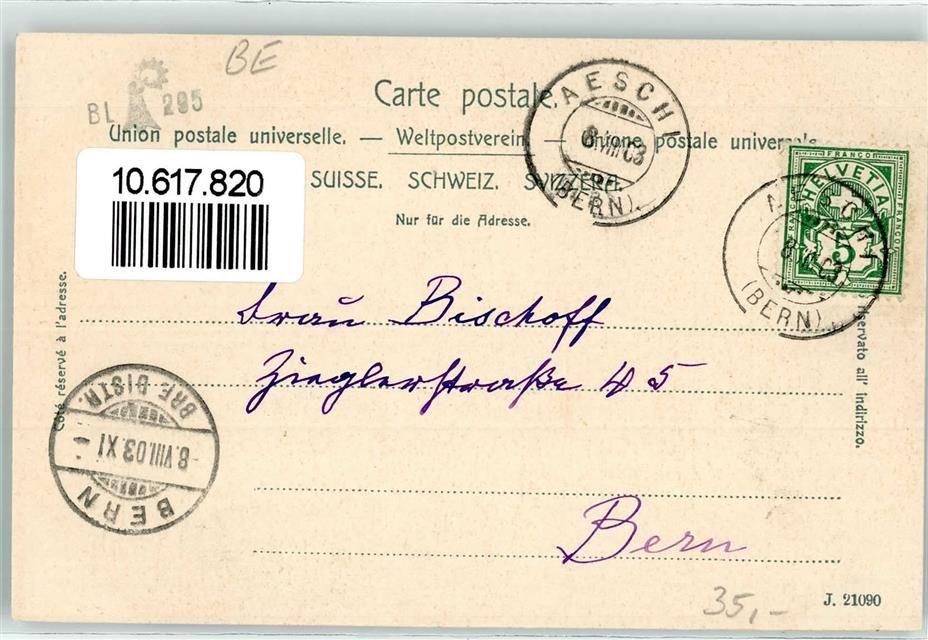 BE
BL 295
Carte postale.
Union postale universelle. — Weltpostverein. — Unione postale universale
SUISSE. SCHWEIZ. SVIZZERA.
Nur für die Adresse.
10.617.820
AESCHI
8 VIII 03
(BERN)
FRANCO
HELVETIA
FRANCO
5
AESCHI
8 VIII 03
(BERN)
Côté réservé à l'adresse.
riservato all' indirizzo.
Frau Bischoff
Zieglerstraße 45
Bern
BRE DISTR.
-8.VIII.03.XI-
BERN
35,-
J. 21090